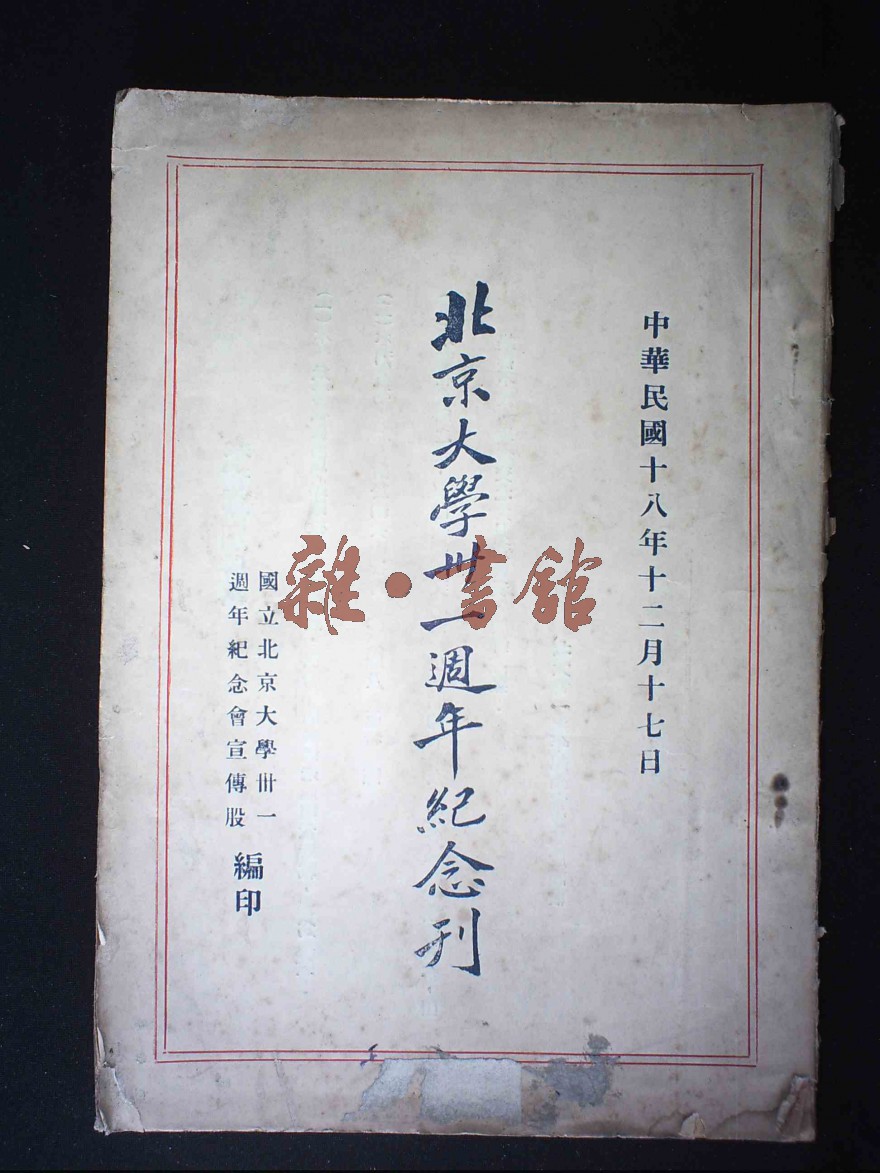 中華民國十八年十二月十七日
北京大學卅一週年紀念刊
國立北京大學卅一
週年紀念會宣傳股
編印
雜·書館